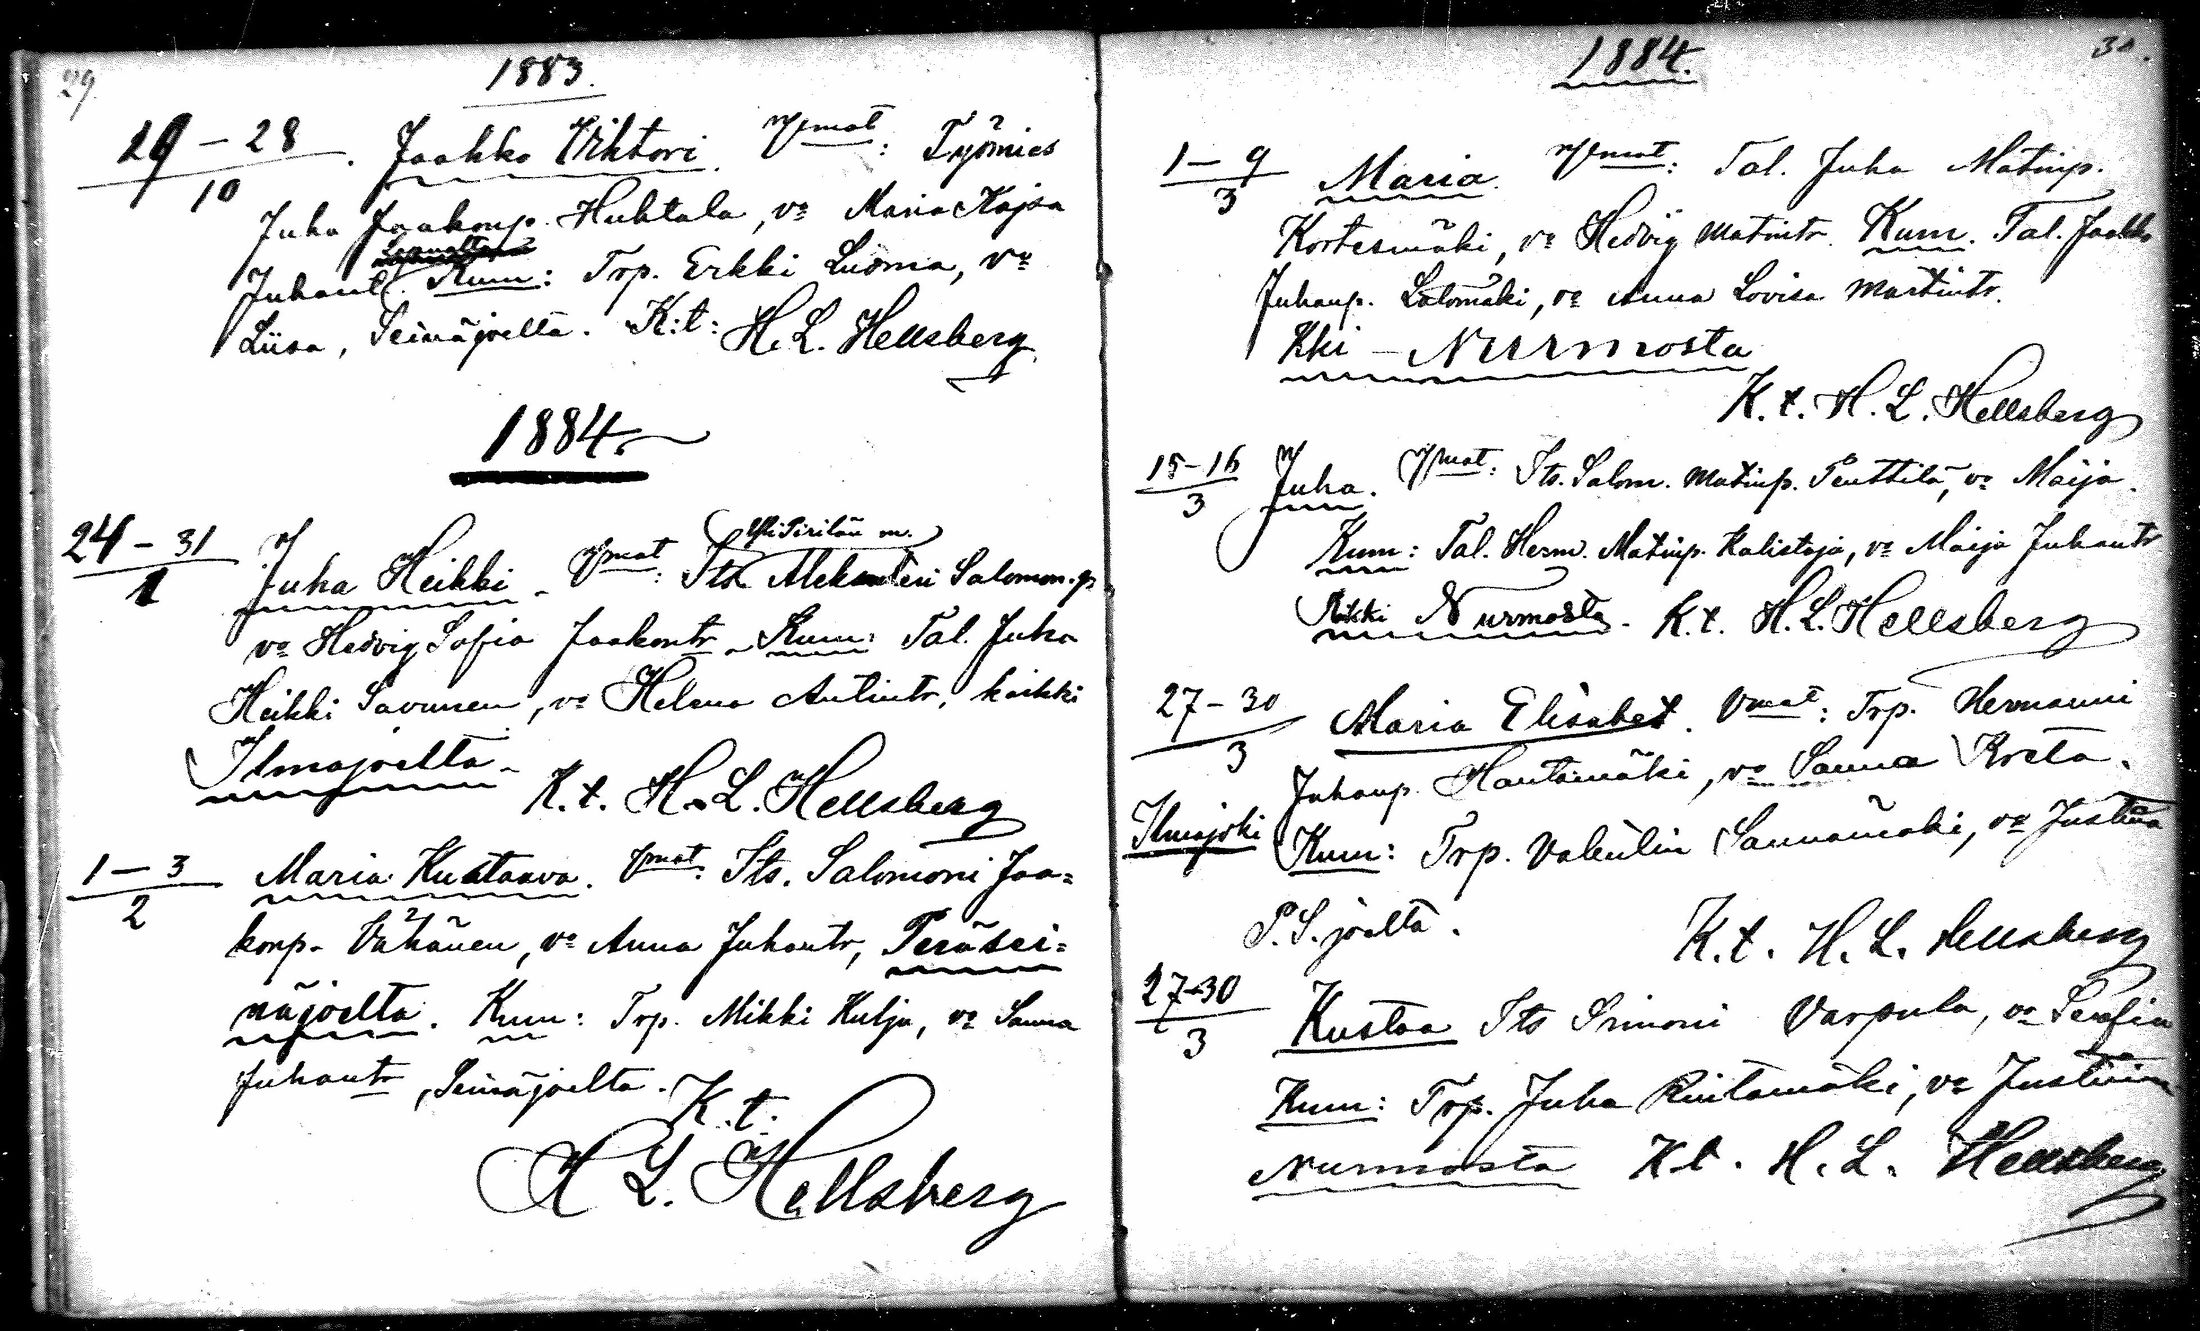 29.
1883.
19 – 28 / 10. Jaakko Vihtori. Vmat: Työmies
Juho Jaakonp. Huhtala, vo Maria Kajsa
Juhant. Kum: Trp. Erkki Luoma, vo
Liisa, Seinäjoelta. K:t: H. L. Hellsberg.
1884.
24 – 31 / 1 Juha Heikki – Vmat: Its Aleksanteri Salomon.p
vo Hedvig Sofia Jaakontr – Kum: Tal. Juho
Heikki Savunen, vo Helena Antintr, kaikki
Ilmajoelta –
K. t. H. L. Hellsberg
1 – 3 / 2 Maria Kustaava. Vmat: Its. Salomoni Jaa=
konp. Vähänen, vo Anna Juhantr, Peräsei=
näjoelta. Kum: Trp. Mikki Kulju, vo Sanna
Juhantr, Seinäjoelta. K. t.
H L. Hellsberg
30.
1884.
1 – 9 / 3 Maria. Vmat: Tal. Juha Matinp.
Kortesmäki, vo Hedvig Matintr. Kum. Tal. Jaakko
Juhanp. Latomäki, vo Anna Lovisa Martintr.
Kki – Nurmosta
K. t. H. L. Hellsberg
15–16 / 3 Juha. Vmat: Its. Salom. Matinp. Penttilä, vo Maija.
Kum: Tal. Herm. Matinp. Kalistaja, vo Maija Juhantr
Kikki Nurmosta. K. t. H. L. Hellsberg
27 – 30 / 3 Maria Elisabet. Vmat: Trp. Hermanni
Juhanp. Hautamäki, vo Sanna Kreta.
Ilmajoki Kum: Trp. Valentin Saunamäki, vo Justina
P. S. joelta.
K. t. H. L. Hellsberg
27–30 / 3 Kustaa Its Simoni Varpula, vo Serafia
Kum: Trp. Juha Rintamäki, vo Justiina
Nurmosta K t. H. L. Hellsberg